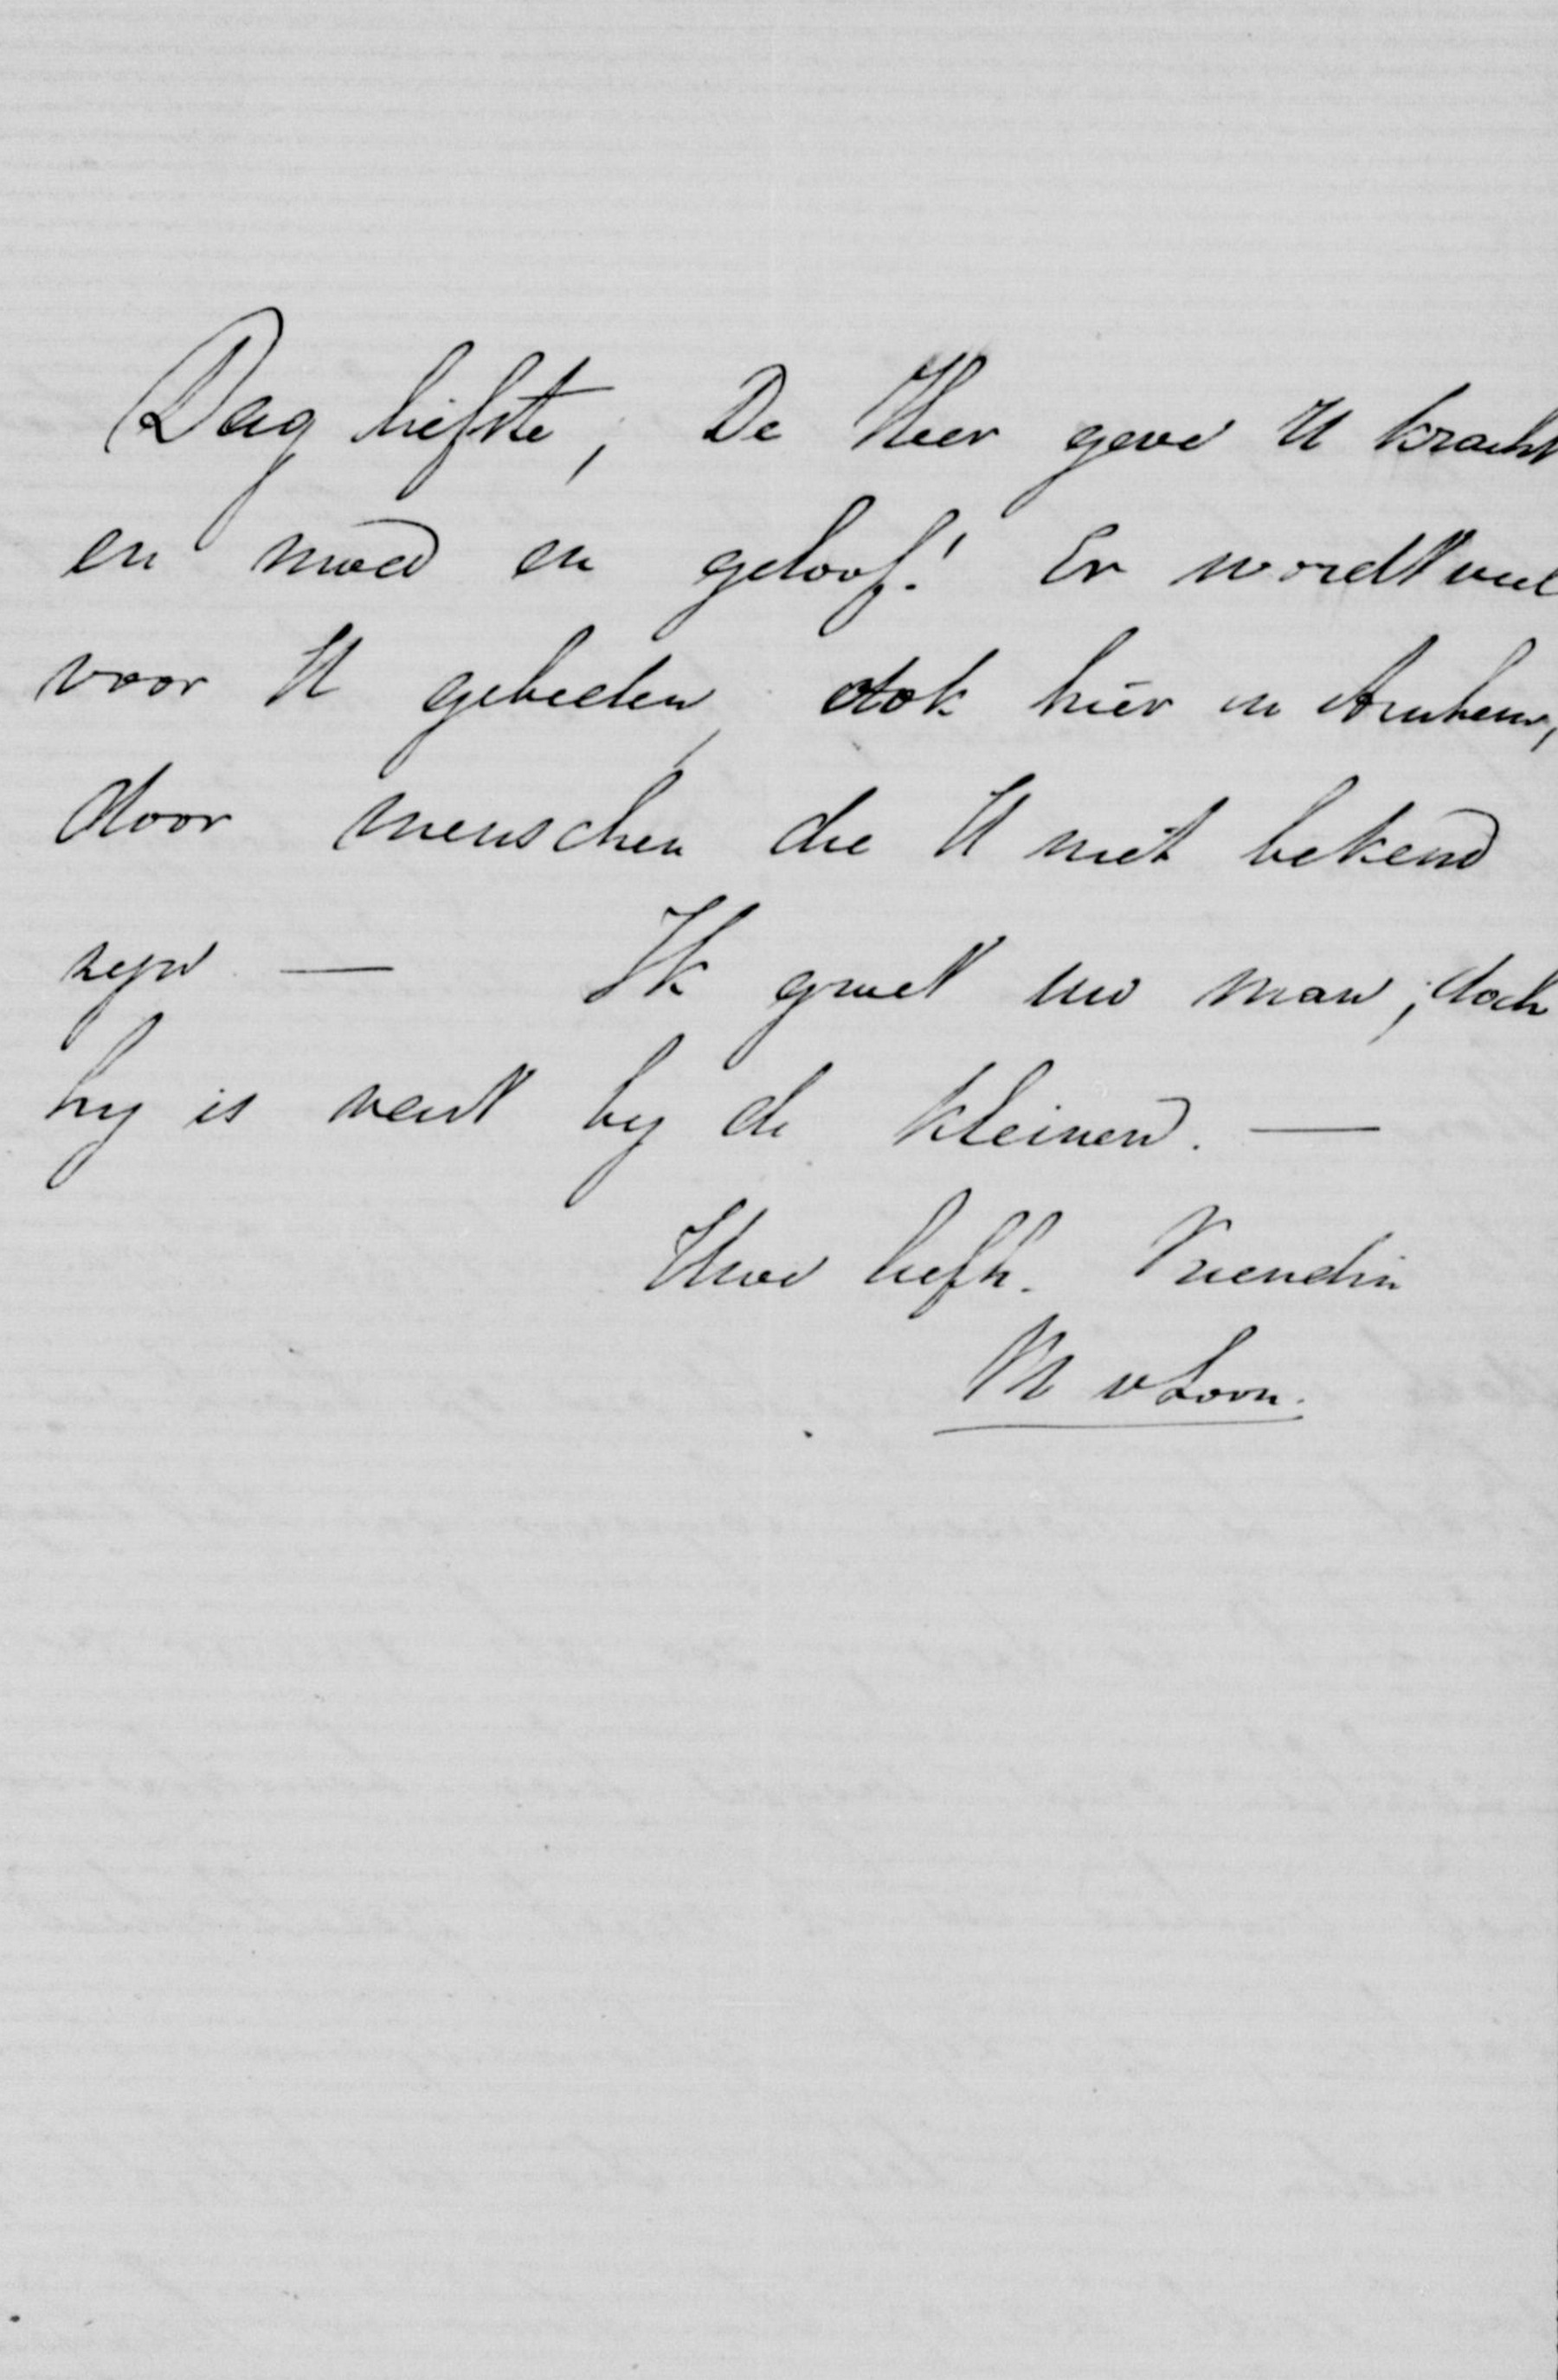 Dag liefste, De Heer geve U kracht
en moed en geloof! Er wordt veel
voor U gebeden, ook hier in Arnhem,
door menschen die U niet bekend
zyn — Ik groet uw man, doch
hy is by de kleinen. —
Uwe liefh. Vriendin
M v Loon.